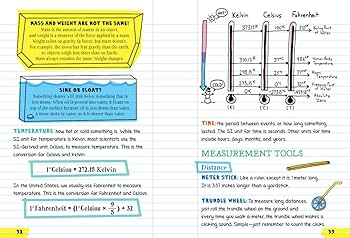 MASS AND WEIGHT ARE NOT THE SAME!
Mass is the amount of matter in an object,
and weight is a measure of the force applied by a mass.
Weight relies on gravity (a force), but mass doesn't.
For example, the moon has less gravity than the earth,
so objects weigh less there than on Earth.
Mass always remains the same. Weight changes.
SINK OR FLOAT?
TEMPERATURE: how hot or cold something is. While the
SI unit for temperature is Kelvin, most scientists use the
SI-derived unit, Celsius, to measure temperature. This is the
conversion for Celsius and Kelvin:
1°Celsius = 272.15 Kelvin
In the United States, we usually use Fahrenheit to measure
temperature. This is the conversion for Fahrenheit and Celsius:
1°Fahrenheit = (1°Celsius × 9/5) + 32
32
Kelvin Celsius Fahrenheit
HOT
COLD
373.15 100° 212°
Boiling Point of Water
310.15 37° 98.6°
Human Body Temperature
Room Temperature
273.15 0° 32°
Absolute Zero
TIME: the period between events, or how long something
lasted. The SI unit for time is seconds. Other units for time
include hours, days, months, and years.
MEASUREMENT TOOLS
Distance
METER STICK: Like a ruler, except it is 1 meter long.
It is 3.37 inches longer than a yardstick.
TRUNDLE WHEEL: To measure long distances,
just roll the trundle wheel on the ground and
every time you walk a meter, the trundle wheel makes a
clicking sound. Simple—just remember to count the clicks!
33